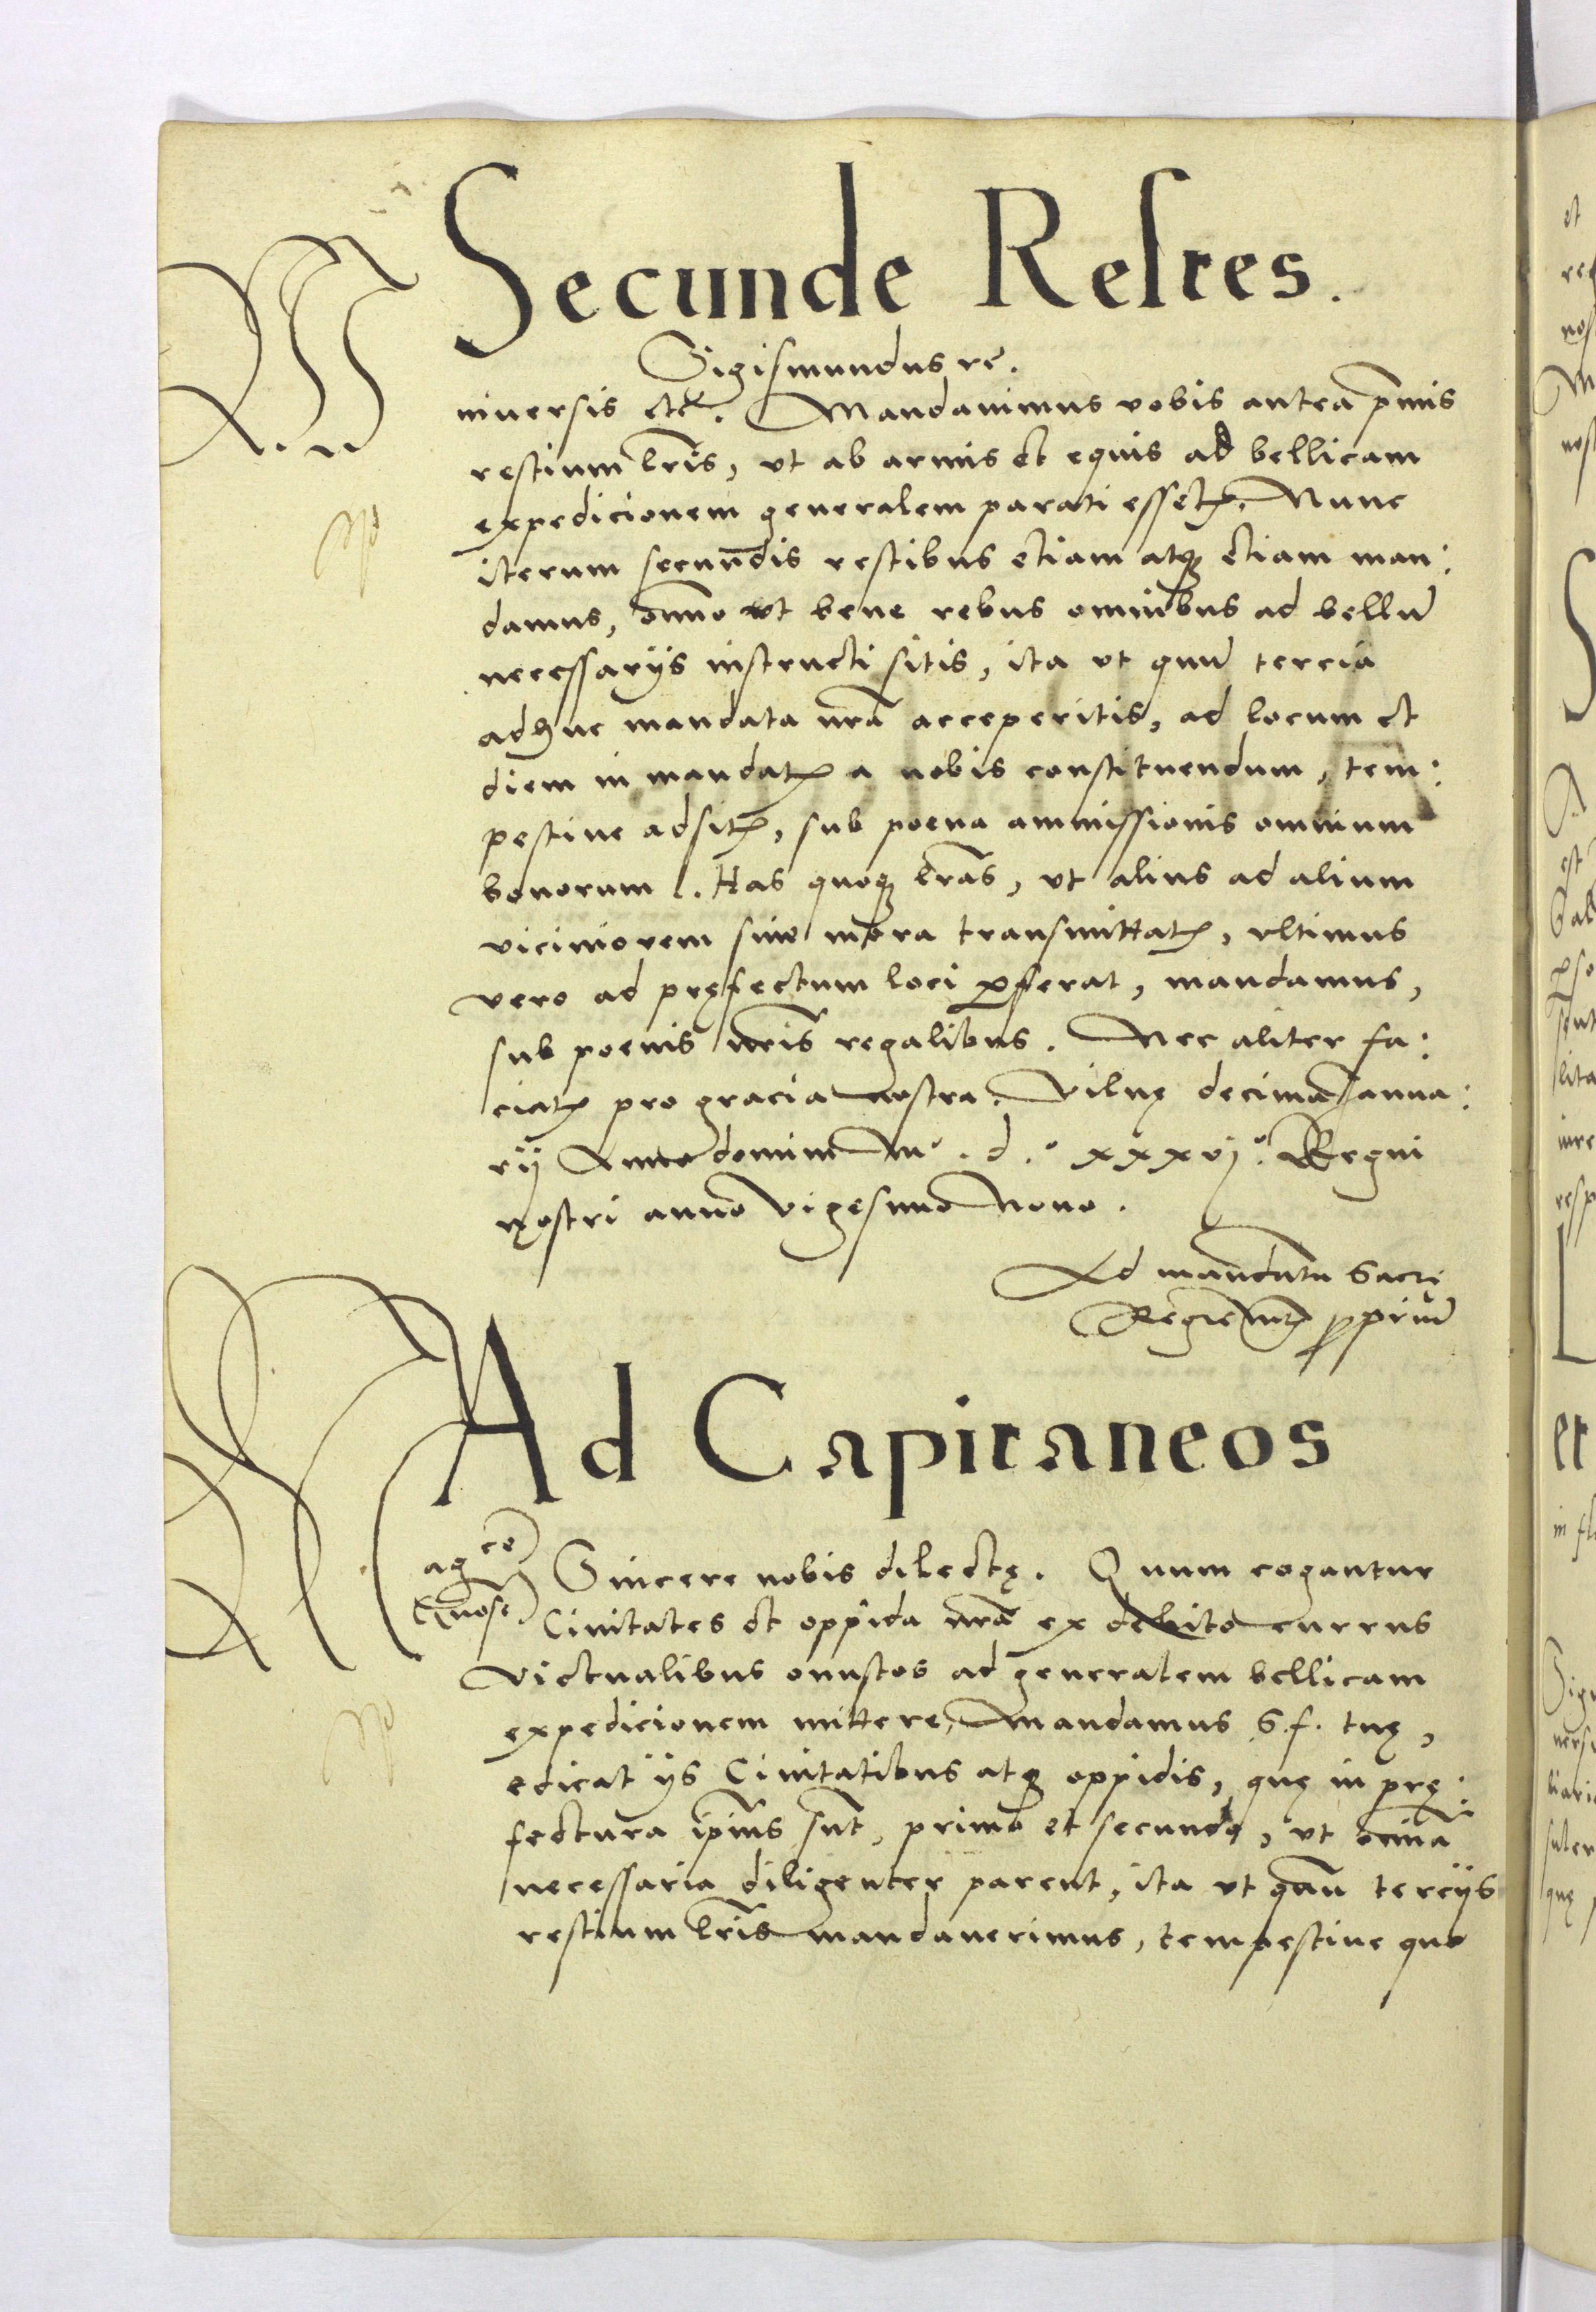 Secunde Restes.
Sigismundus rc.
Universis etc. Mandavimus vobis antea p̄mis
restium lr̄is, ut ab armis et equis ad bellicam
expedicionem generalem parati essetꝭ, Nunc
iterum secundis restibus etiam atqꝫ etiam man:
damus, om̄no ut bene rebus omnibus ad bellū
necessarijs instructi sitis, ita ut quū tercia
adhuc mandata nr̄a acceperitis, ad locum et
diem in mandatꝭ a nobis constituendum, tem:
pestive adsitꝭ, sub poena ammissionis omnium
bonorum. Has quoqꝫ lr̄as, ut alius ad alium
viciniorem sine mora transmittatꝭ, ultimus
vero ad pręfectum loci ꝑferat, mandamus,
sub poenis nr̄is regalibus. Nec aliter fa:
ciatꝭ pro gracia nostra. Vilnę decima Janua:
rij Anno domini Mº. d.º xxxvj.º Regni
nostri anno vigesimo nono.
Ad mandatū Sacrę
Regie mtꝭ ꝓpriū
Ad Capitaneos
Magce
Gnose
Sincere nobis dilectę. Quum cogantur
Civitates et oppida nr̄a ex debito currus
victualibus onustos ad generalem bellicam
expedicionem mittere, Mandamus S.f. tuę,
edicat ijs Civitatibus atqꝫ oppidis, quę in prę:
fectura ip̄ius sunt, primo et secundo, ut omnia
necessaria diligenter parent, ita ut quū tercijs
restium lr̄is mandaverimus, tempestive quo